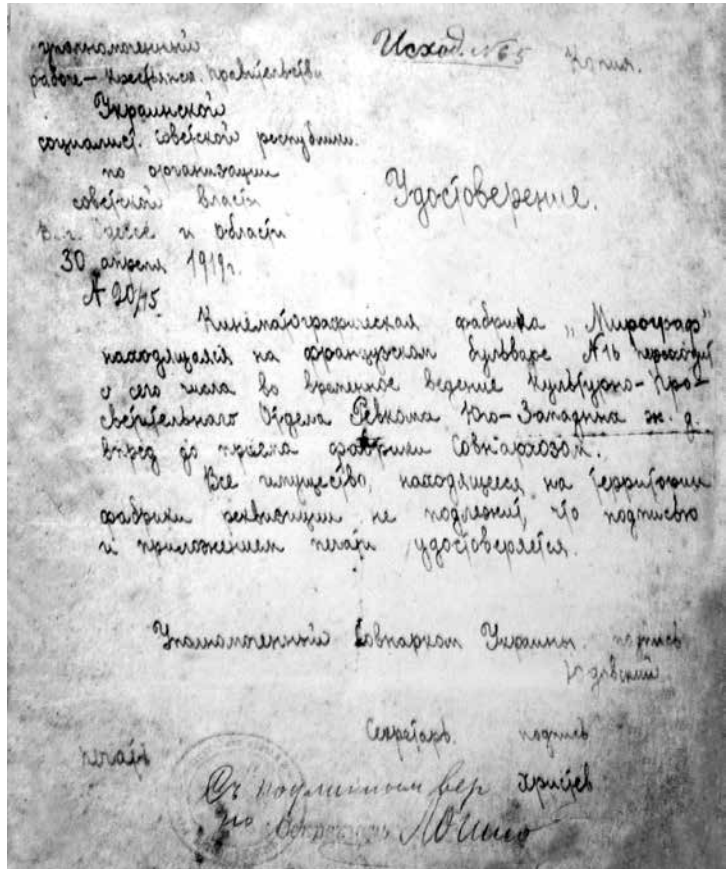 Уполномоченный
рабоче-крестьянск. правительства
Украинской
социалист. советской республики.
по организации
советской власти
в г. Одессе и области
30 апреля 1919г.
№ 20/75
Исход. №65
Копия.
Удостоверение.
Кинематографическая фабрика „Мирограф"
находящаяся на французском бульваре №16 переходит
с сего числа во временное ведение Культурно-Про-
светительного Отдела Ревкома Юго-Западных ж. д.
впредь до приема фабрики Совнархозом.
Все имущество, находящееся на территории
фабрики реквизиции не подлежит, что подписью
и приложением печати удостоверяется.
Уполномоченный Совнаркома Украины. подпись
Юдовский
Секретарь. подпись
Христев
печать
Съ подлинным вер
Секретарь